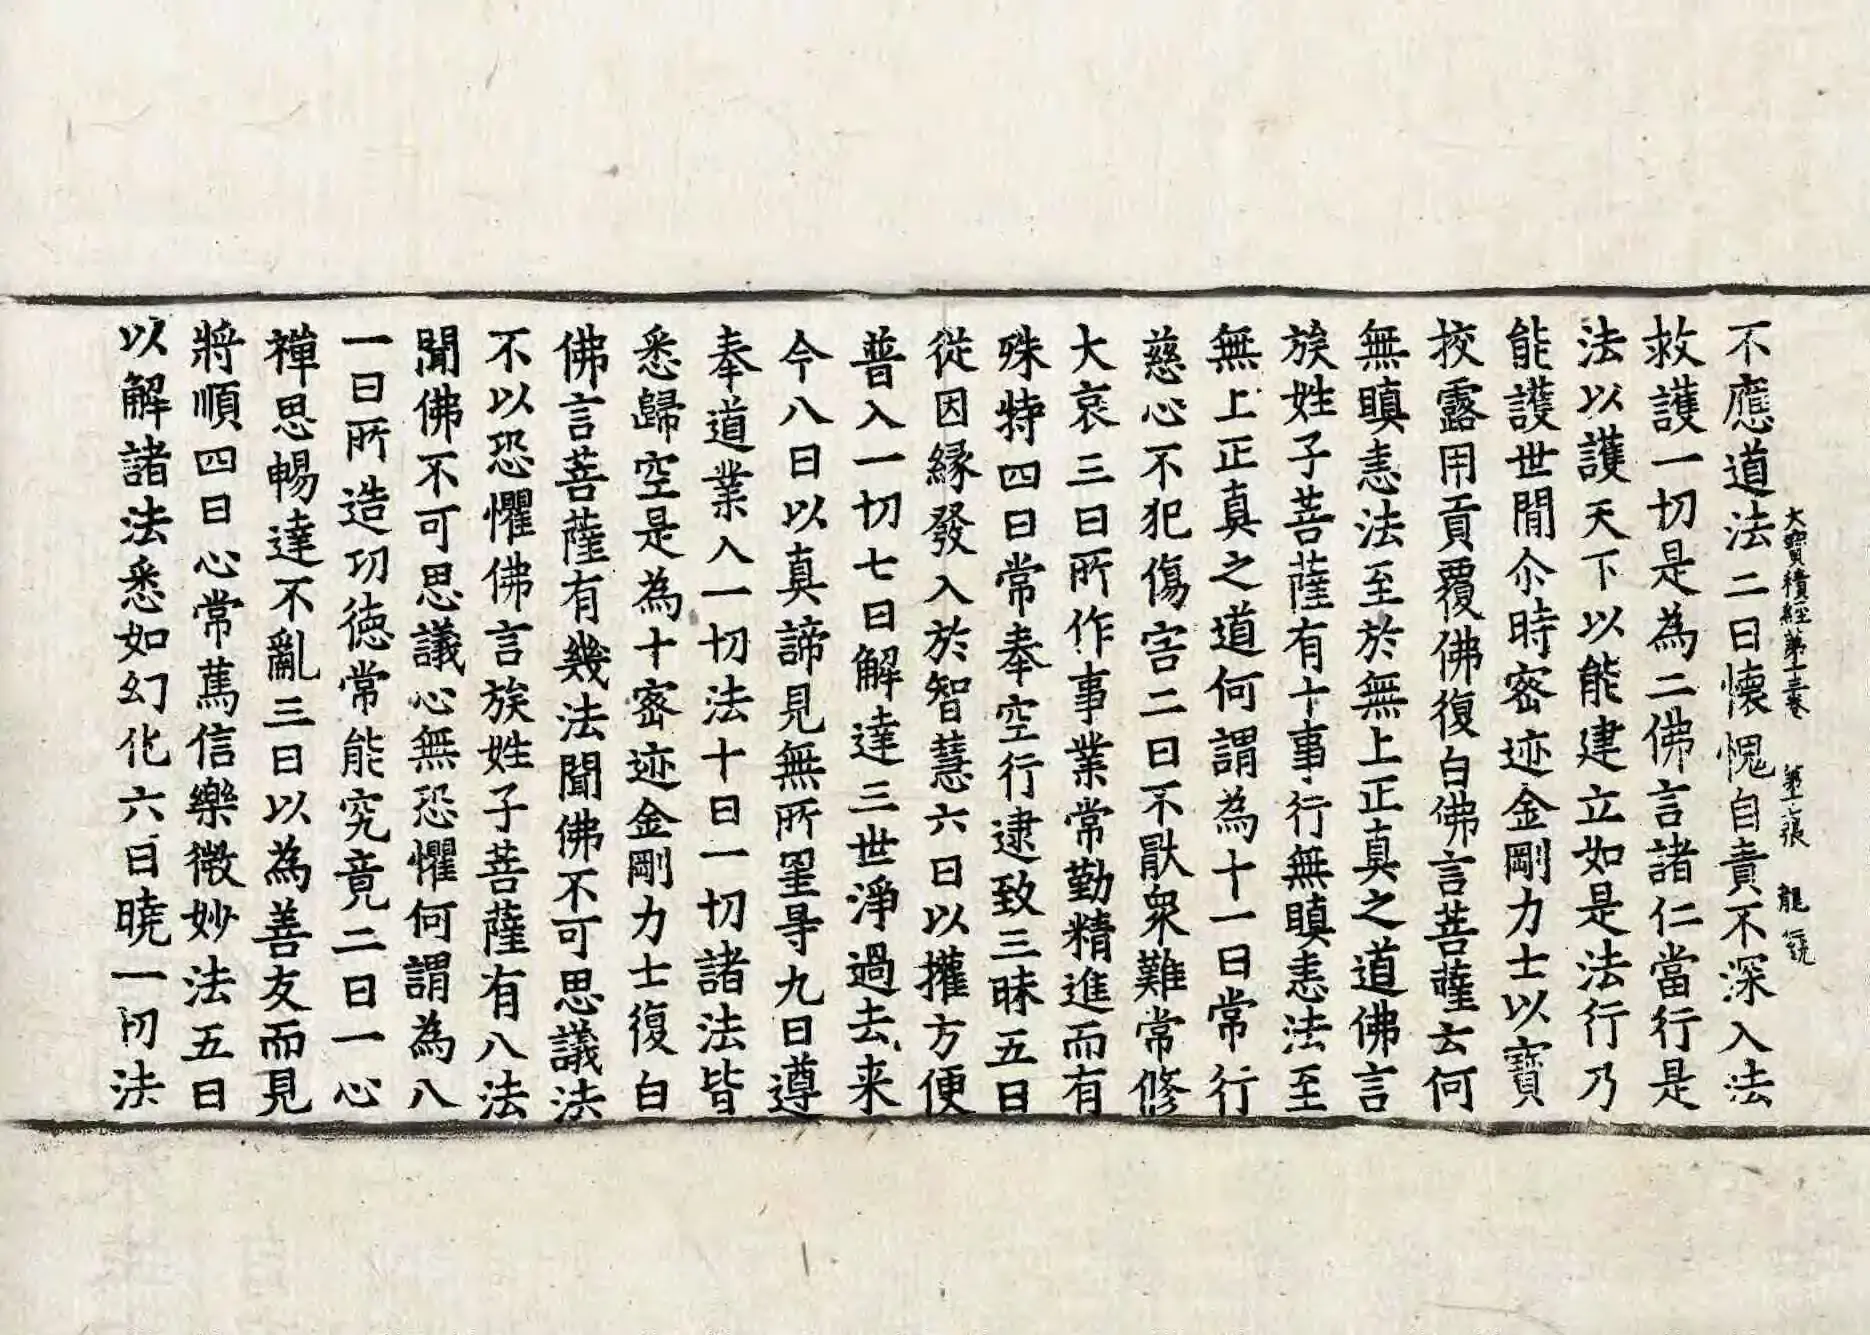 大寶積經第十三卷 張 龍
不應道法二曰懷愧自責不深入法
救護一切是為二佛言諸仁當行是
法以護天下以能建立如是法行乃
能護世閒尒時密迹金剛力士以寶
挍露用貢覆佛復白佛言菩薩云何
無瞋恚法至於無上正真之道佛言
族姓子菩薩有十事行無瞋恚法至
無上正真之道何謂為十一曰常行
慈心不犯傷害二曰不猒衆難常修
大哀三曰所作事業常勤精進而有
殊特四曰常奉空行逮致三昧五曰
從因縁發入於智慧六曰以權方便
普入一切七曰解達三世淨過去来
今八曰以真諦見無所罣㝵九曰遵
奉道業入一切法十曰一切諸法皆
悉歸空是為十密迹金剛力士復白
佛言菩薩有幾法聞佛不可思議法
不以恐懼佛言族姓子菩薩有八法
聞佛不可思議心無恐懼何謂為八
一曰所造功徳常能究竟二曰一心
禪思暢達不亂三曰以為善友而見
將順四曰心常篤信樂微妙法五曰
以解諸法悉如幻化六曰曉一切法